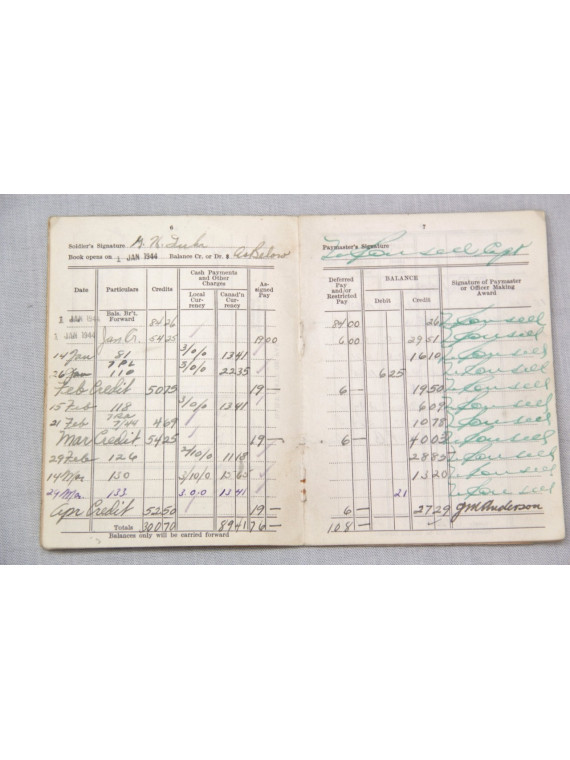 6
Soldier's Signature
Book opens on 1 JAN 1944 Balance Cr. or Dr. $ as Below
Date Particulars Credits Cash Payments and Other Charges Local Currency Canad'n Currency Assigned Pay
1 JAN 1944 Bals. Br't. Forward 84 26
1 JAN 1944 Jan Cr. 54 25 19 00
14 Jan 81 3/0/0 13 41
26 Jan 110 22 35
Feb Credit 50 75 19 —
15 Feb 118 3/0/0 13 41
21 Feb 7/44 4 69
Mar Credit 54 25 19 —
29 Feb 126 2/10/0 11 18
14 Mar 130 3/10/0 15 65
29 Mar 133 3.0.0 13 41
Apr Credit 52 50 19 —
Totals 300 70 89 41 76 —
Balances only will be carried forward
7
Paymaster's Signature Capt
Deferred Pay and/or Restricted Pay BALANCE Debit Credit Signature of Paymaster or Officer Making Award
84 00 26
6 00 29 51
16 10
6 25
6 — 19 50
6 09
10 78
6 — 40 03
28 85
13 20
21
6 — 27 29 Anderson
108 —